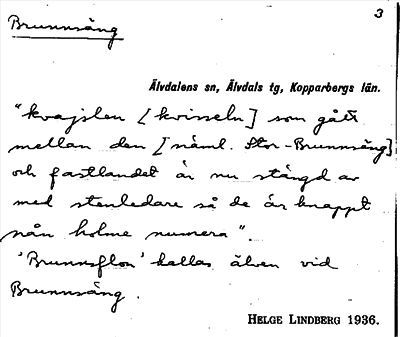 3
Brunnsäng
Älvdalens sn, Älvdals tg, Kopparbergs län.
"kvajslen [kvisseln] som gått
mellan den [näml. Stor-Brunnsäng]
och fastlandet är nu stängd av
med stenledare så de är knappt
nån holme numera".
'Brunnsflon' kallas älven vid
Brunnsäng.
HELGE LINDBERG 1936.